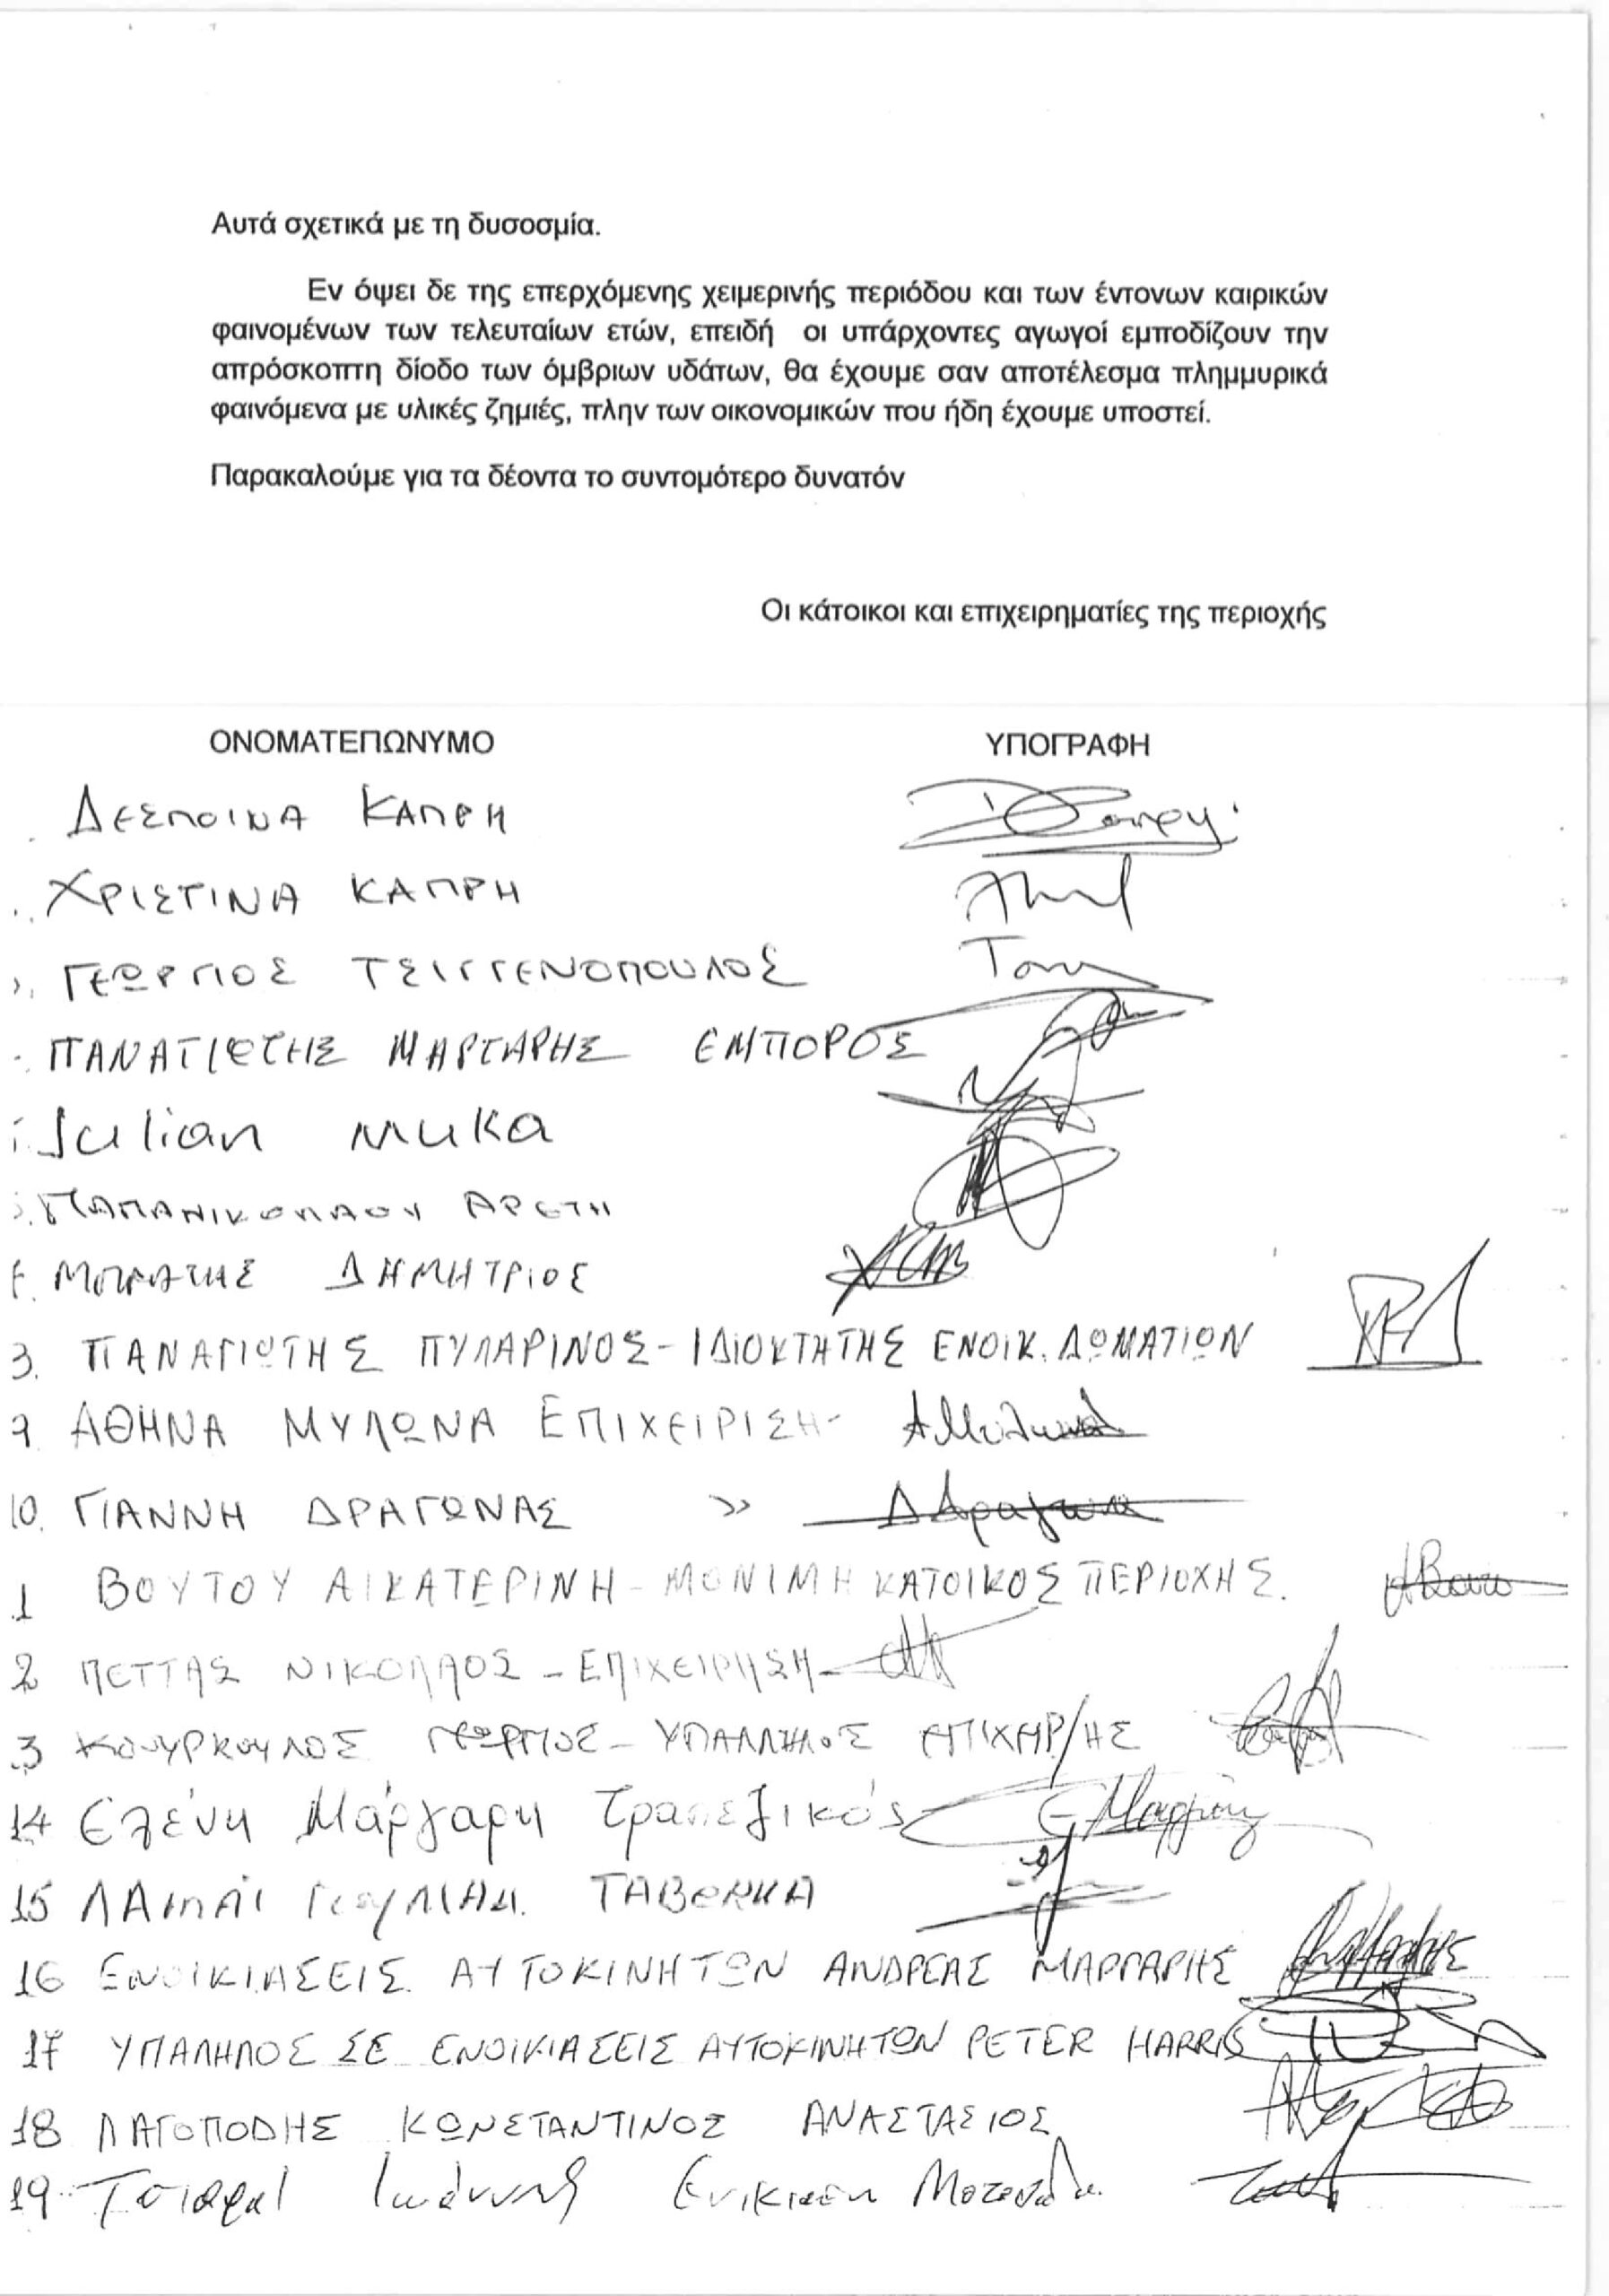 Αυτά σχετικά με τη δυσοσμία.
Εν όψει δε της επερχόμενης χειμερινής περιόδου και των έντονων καιρικών
φαινομένων των τελευταίων ετών, επειδή οι υπάρχοντες αγωγοί εμποδίζουν την
απρόσκοπτη δίοδο των όμβριων υδάτων, θα έχουμε σαν αποτέλεσμα πλημμυρικά
φαινόμενα με υλικές ζημιές, πλην των οικονομικών που ήδη έχουμε υποστεί.
Παρακαλούμε για τα δέοντα το συντομότερο δυνατόν
Οι κάτοικοι και επιχειρηματίες της περιοχής
ΟΝΟΜΑΤΕΠΩΝΥΜΟ ΥΠΟΓΡΑΦΗ
ΔΕΣΠΟΙΝΑ ΚΑΠΡΗ
ΧΡΙΣΤΙΝΑ ΚΑΠΡΗ
ΓΕΩΡΓΙΟΣ ΤΣΙΓΓΕΝΟΠΟΥΛΟΣ
ΠΑΝΑΓΙΩΤΗΣ ΜΑΡΓΑΡΗΣ ΕΜΠΟΡΟΣ
Julian Muka
ΠΑΠΑΝΙΚΟΛΑΟΥ ΑΡΕΤΗ
ΔΗΜΗΤΡΙΟΣ
ΠΑΝΑΓΙΩΤΗΣ ΠΥΛΑΡΙΝΟΣ - ΙΔΙΟΚΤΗΤΗΣ ΕΝΟΙΚ. ΔΩΜΑΤΙΩΝ
9 ΑΘΗΝΑ ΜΥΛΩΝΑ ΕΠΙΧΕΙΡΙΣΗ - ΑΜυλωνα
10. ΓΙΑΝΝΗ ΔΡΑΓΩΝΑΣ >>
1 ΒΟΥΤΟΥ ΑΙΚΑΤΕΡΙΝΗ - ΜΟΝΙΜΗ ΚΑΤΟΙΚΟΣ ΠΕΡΙΟΧΗΣ.
2 ΠΕΤΤΑΣ ΝΙΚΟΛΑΟΣ - ΕΠΙΧΕΙΡΗΣΗ -
3 ΚΟΥΡΚΟΥΛΟΣ ΓΕΩΡΓΙΟΣ - ΥΠΑΛΛΗΛΟΣ ΕΠΙΧΕΙΡ/ΗΣ
14 Ελένη Μάργαρη Τραπεζικός
15 ΤΑΒΕΡΝΑ
16 ΕΝΟΙΚΙΑΣΕΙΣ ΑΥΤΟΚΙΝΗΤΩΝ ΑΝΔΡΕΑΣ ΜΑΡΓΑΡΗΣ
17 ΥΠΑΛΗΛΟΣ ΣΕ ΕΝΟΙΚΙΑΣΕΙΣ ΑΥΤΟΚΙΝΗΤΩΝ PETER HARRIS
18 ΛΑΓΟΠΟΔΗΣ ΚΩΝΣΤΑΝΤΙΝΟΣ ΑΝΑΣΤΑΣΙΟΣ
19 Ιωάννης